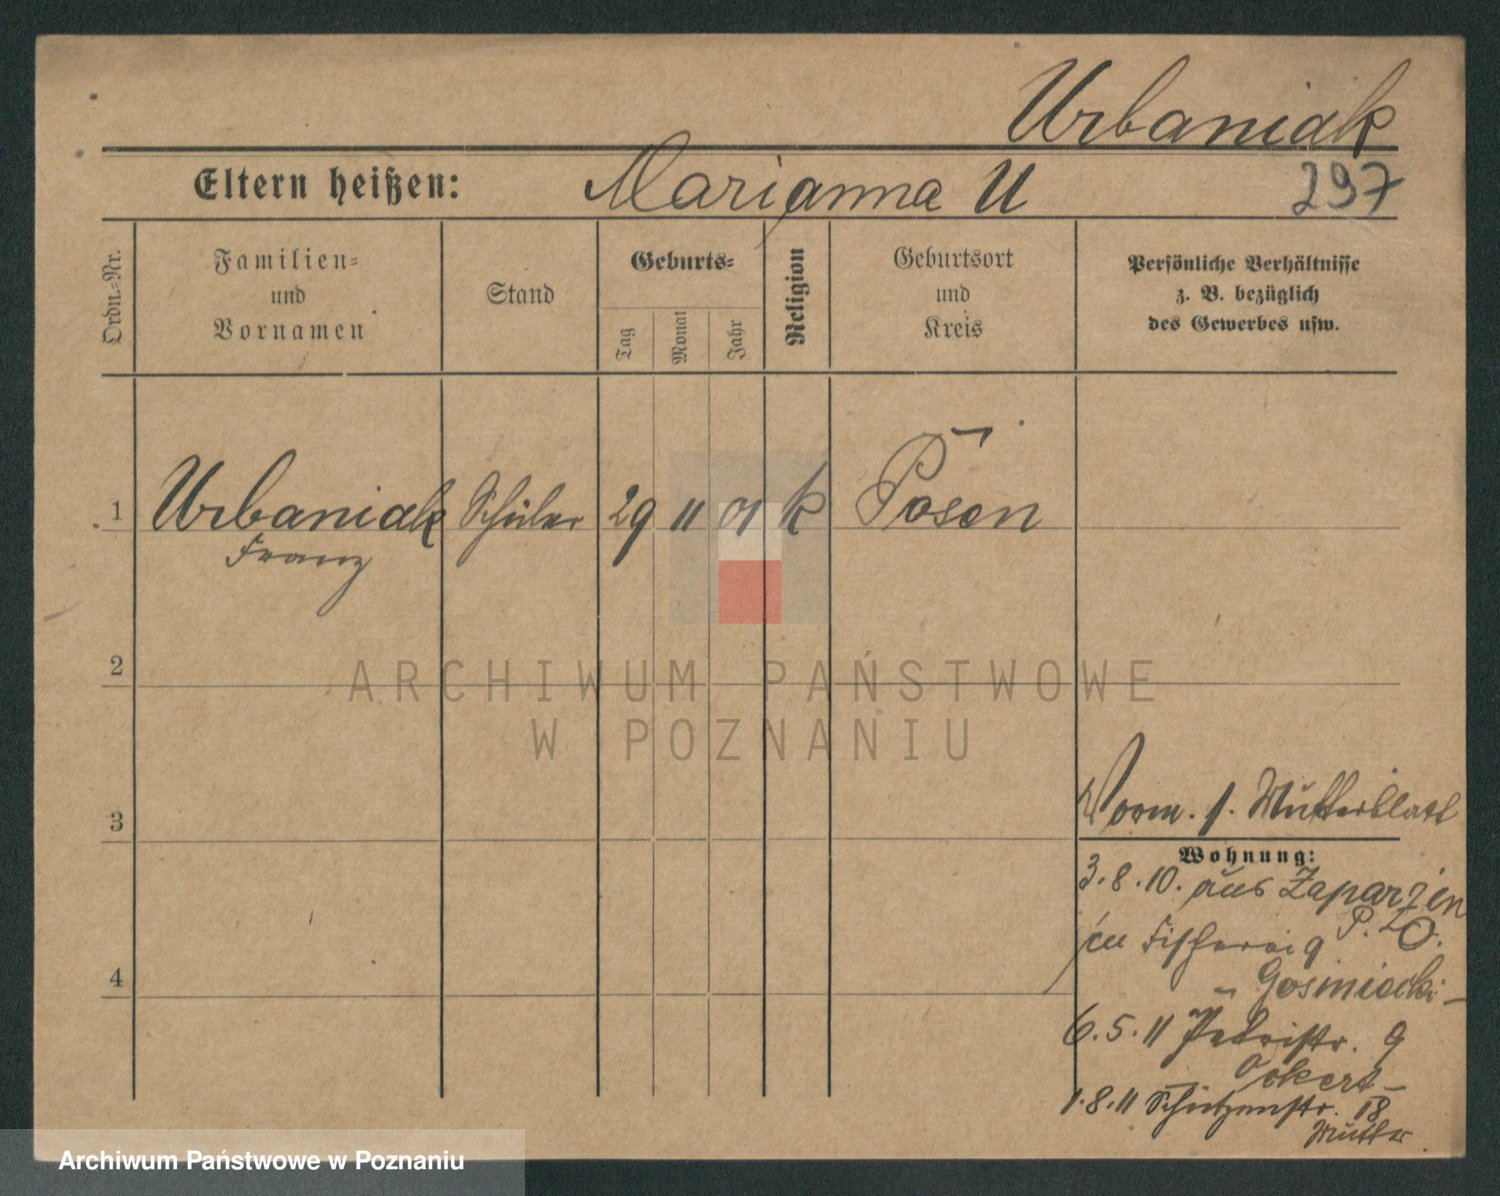 Urbaniak
Eltern heißen: Marianna U 297
Ordn.-Nr.
Familien-
und
Vornamen
Stand
Geburts-
Tag
Monat
Jahr
Religion
Geburtsort
und
Kreis
Persönliche Verhältnisse
z. B. bezüglich
des Gewerbes usw.
1 Urbaniak Schüler 29 11 01 k Posen
Franz
2
ARCHIWUM PAŃSTWOWE
W POZNANIU
3
Vorm. s. Mutterblatt
Wohnung:
3.8.10. aus
P. O.
in Fischerei 9
4
6.5.11 Petristr. 9
1.8.11 Schützenstr. 18
Mutter
Archiwum Państwowe w Poznaniu